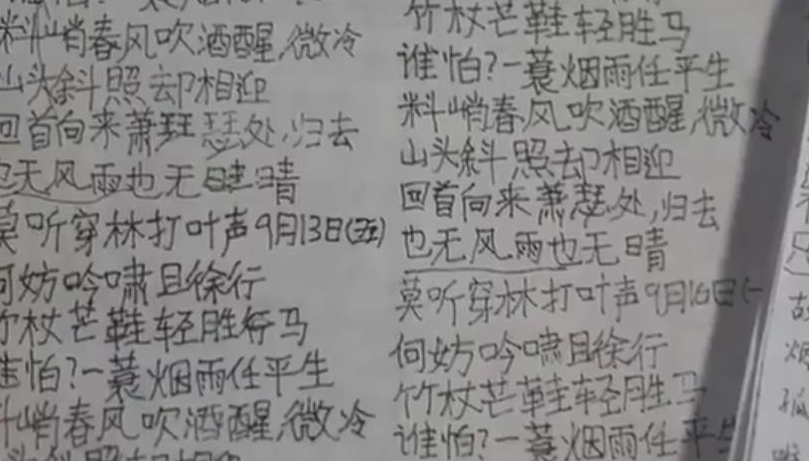 料峭春风吹酒醒,微冷
山头斜照却相迎
回首向来萧瑟处,归去
也无风雨也无晴
莫听穿林打叶声9月13日(五)
何妨吟啸且徐行
竹杖芒鞋轻胜马
谁怕?一蓑烟雨任平生
料峭春风吹酒醒,微冷
竹杖芒鞋轻胜马
谁怕?一蓑烟雨任平生
料峭春风吹酒醒,微冷
山头斜照却相迎
回首向来萧瑟处,归去
也无风雨也无晴
莫听穿林打叶声9月16日(一
何妨吟啸且徐行
竹杖芒鞋轻胜马
谁怕?一蓑烟雨任平生